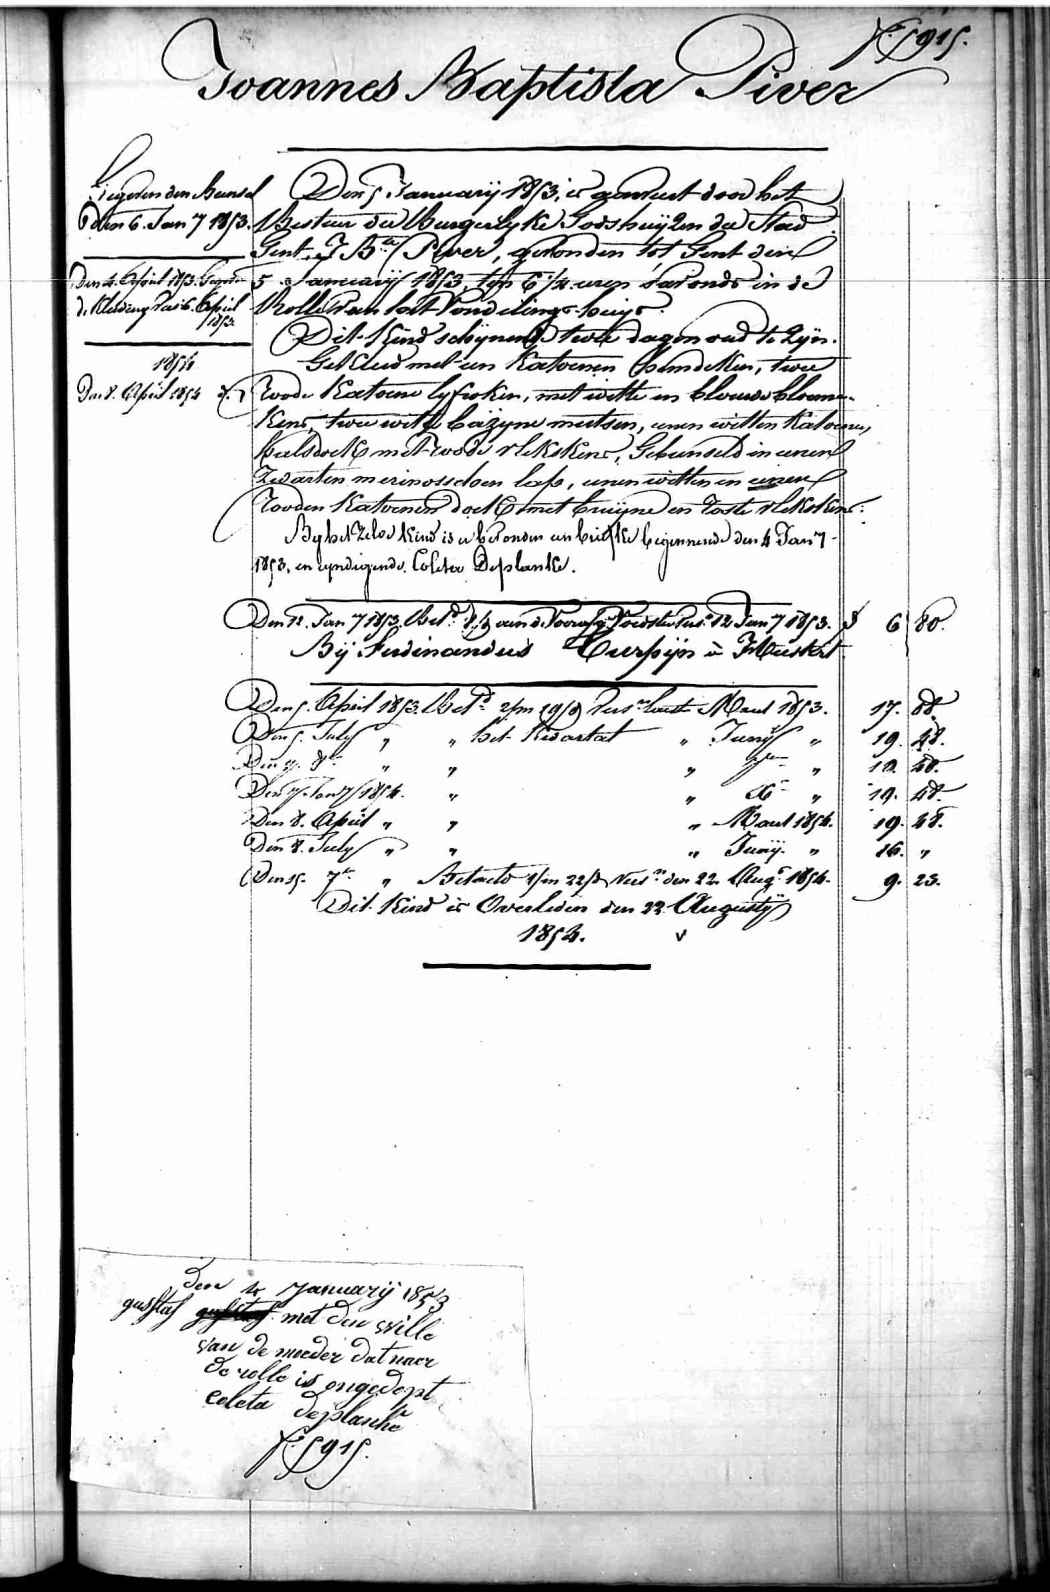 N.º 5915.
Joannes Baptista Piver
Gegeven den Bunsel
den 6. Jan 7 1853.
Den 4. April 1853.
de Kleeding van 6. April
1853.
1854
Den 8. April 1854
Den 5 Januarij 1853, is gevoert door het
Bestuer der Burgerlyke Godshuijzen der Stad
Gent, J. Bta Piver, gevonden tot Gent den
5 Januarij 1853, ten 6 1/4 uren s'avonds in de
Rolle van het Vondelings-huijs.
Dit Kind schijnende twee dagen oud te Zijn.
Gekleed met een Katoenen hemdeken, twee
roode Katoene lyfroken, met witte en blouwe bloem-
kens, twee witte bazyne mutsen, eenen witten Katoenen
halsdoek met roode vlekskens, Gebunseld in eenen
Zwarten merinosschen lap, eenen witten en eenen
rooden Katoenen doek met bruijne en roste vlekskens.
By het Zelve Kind is er bevonden een briefke beginnende den 4 Jan 7
1853, en eyndigende Coleta Deplanke.
Den 12 Jan 7 1853 Bet.d 12 Jan 7 1853. 6 80.
Bij Ferdinandus
Den 5. April 1853. Bet.d Maert 1853. 17. 88.
Den 5. July " " het Kwartaal " Junij " 19. 48.
" " " " 19. 48.
Den 7. Jan 7 1854. " " Xbr " 19. 48.
Den 8. April " " " Maert 1854. 19. 48.
Den 8. July " " " Junij " 16. "
Den 15. 7br " Betaeld den 22 Aug. 1854. 9. 23.
Dit Kind is Overleden den 22 Augustij
1854.
den 4 Januarij 1853
gusstaf met den wille
van de moeder dat naer
de rolle is ongedopt
coleta deplancke
N.º 5915.